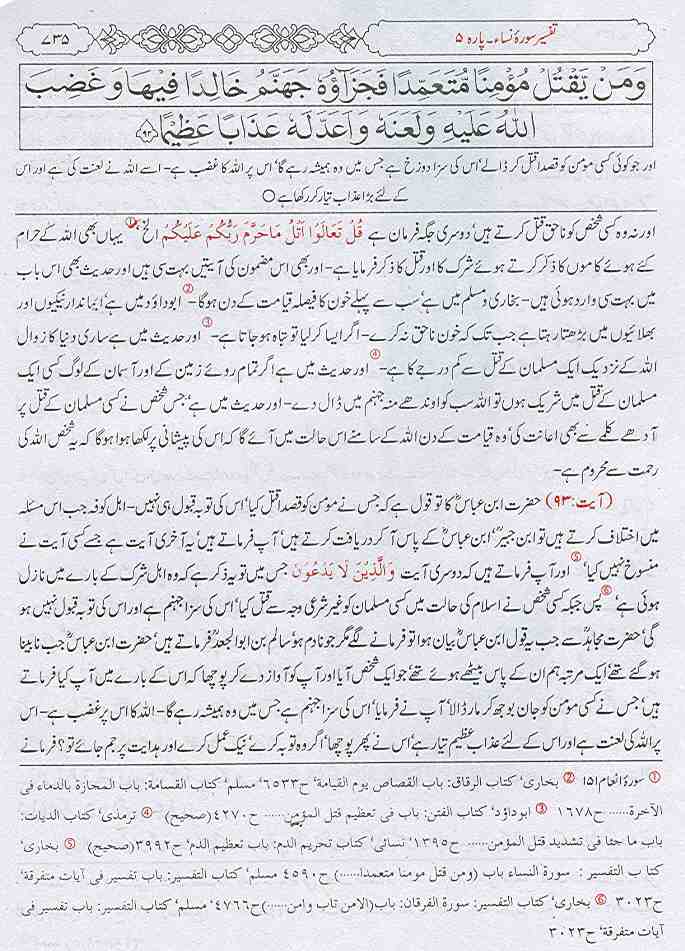 تفسیر سورۂ نساء۔ پارہ ۵
۷۳۵
وَمَنْ يَّقْتُلْ مُؤْمِنًا مُّتَعَمِّدًا فَجَزَآؤُهٗ جَهَنَّمُ خَالِدًا فِيْهَا وَغَضِبَ
اللّٰهُ عَلَيْهِ وَلَعَنَهٗ وَاَعَدَّ لَهٗ عَذَابًا عَظِيْمًا ﴿۹۳﴾
اور جو کوئی کسی مومن کو قصداً قتل کر ڈالے' اس کی سزا دوزخ ہے جس میں وہ ہمیشہ رہے گا' اس پر اللہ کا غضب ہے۔ اسے اللہ نے لعنت کی ہے اور اس
کے لئے بڑا عذاب تیار کر رکھا ہے ○
اور نہ وہ کسی شخص کو ناحق قتل کرتے ہیں' دوسری جگہ فرمان ہے قُلْ تَعَالَوْا اَتْلُ مَاحَرَّمَ رَبُّكُمْ عَلَيْكُمْ الخ' ① یہاں بھی اللہ کے حرام
کئے ہوئے کاموں کا ذکر کرتے ہوئے شرک کا اور قتل کا ذکر فرمایا ہے۔ اور بھی اس مضمون کی آیتیں بہت سی ہیں اور حدیث بھی اس باب
میں بہت سی وارد ہوئی ہیں۔ بخاری و مسلم میں ہے' سب سے پہلے خون کا فیصلہ قیامت کے دن ہو گا۔ ② ابوداؤد میں ہے' ایماندار نیکیوں اور
بھلائیوں میں بڑھتا رہتا ہے جب تک کہ خون ناحق نہ کرے۔ اگر ایسا کر لیا تو تباہ ہو جاتا ہے۔ ③ اور حدیث میں ہے ساری دنیا کا زوال
اللہ کے نزدیک ایک مسلمان کے قتل سے کم درجے کا ہے۔ ④ اور حدیث میں ہے اگر تمام روئے زمین کے اور آسمان کے لوگ کسی ایک
مسلمان کے قتل میں شریک ہوں تو اللہ سب کو اوندھے منہ جہنم میں ڈال دے۔ اور حدیث میں ہے' جس شخص نے کسی مسلمان کے قتل پر
آدھے کلمے سے بھی اعانت کی' وہ قیامت کے دن اللہ کے سامنے اس حالت میں آئے گا کہ اس کی پیشانی پر لکھا ہوا ہو گا کہ یہ شخص اللہ کی
رحمت سے محروم ہے۔
(آیت:۹۳) حضرت ابن عباسؓ کا تو قول ہے کہ جس نے مومن کو قصداً قتل کیا' اس کی توبہ قبول ہی نہیں۔ اہل کوفہ جب اس مسئلہ
میں اختلاف کرتے ہیں تو ابن جبیرؒ' ابن عباسؓ کے پاس آ کر دریافت کرتے ہیں' آپ فرماتے ہیں' یہ آخری آیت ہے جسے کسی آیت نے
منسوخ نہیں کیا' ⑤ اور آپ فرماتے ہیں کہ دوسری آیت وَالَّذِيْنَ لَا يَدْعُوْنَ جس میں توبہ ذکر ہے کہ وہ اہل شرک کے بارے میں نازل
ہوئی ہے' ⑥ پس جبکہ کسی شخص نے اسلام کی حالت میں کسی مسلمان کو غیر شرعی وجہ سے قتل کیا' اس کی سزا جہنم ہے اور اس کی توبہ قبول نہیں ہو
گی' حضرت مجاہدؒ سے جب یہ قول ابن عباسؓ بیان ہوا تو فرمانے لگے مگر جو نادم ہو' سالم بن ابوالجعدؒ فرماتے ہیں' حضرت ابن عباسؓ جب نابینا
ہو گئے تھے' ایک مرتبہ ہم ان کے پاس بیٹھے ہوئے تھے' جو ایک شخص آیا اور آپ کو آواز دے کر پوچھا کہ اس کے بارے میں آپ کیا فرماتے
ہیں' جس نے کسی مومن کو جان بوجھ کر مار ڈالا' آپ نے فرمایا' اس کی سزا جہنم ہے جس میں وہ ہمیشہ رہے گا۔ اللہ کا اس پر غضب ہے۔ اس
پر اللہ کی لعنت ہے اور اس کے لئے عذاب عظیم تیار ہے' اس نے پھر پوچھا' اگر وہ توبہ کرے' نیک عمل کرے اور ہدایت پر جم جائے تو؟ فرمانے
① سورۂ انعام ۱۵۱ ② بخاری' کتاب الرقاق: باب القصاص یوم القیامة' ح ۶۵۳۳' مسلم' کتاب القسامة: باب المجازة بالدماء فی
الآخرة...... ح۱۶۷۸ ③ ابوداؤد' کتاب الفتن: باب فی تعظیم قتل المؤمن ...... ح۴۲۷۰ (صحیح) ④ ترمذی' کتاب الدیات:
باب ما جثا فی تشدید قتل المؤمن...... ح۱۳۹۵' نسائی' کتاب تحریم الدم: باب تعظیم الدم' ح۳۹۹۲(صحیح) ⑤ بخاری'
کتاب التفسیر : سورة النساء باب (ومن قتل مومنا متعمدا......) ح ۴۵۹۰ مسلم' کتاب التفسیر: باب تفسیر فی آیات متفرقة'
ح۳۰۲۳ ⑥ بخاری' کتاب التفسیر: سورة الفرقان: باب(الامن تاب وامن......) ح۴۷۶۶' مسلم' کتاب التفسیر: باب تفسیر فی
آیات متفرقة' ح۳۰۲۳